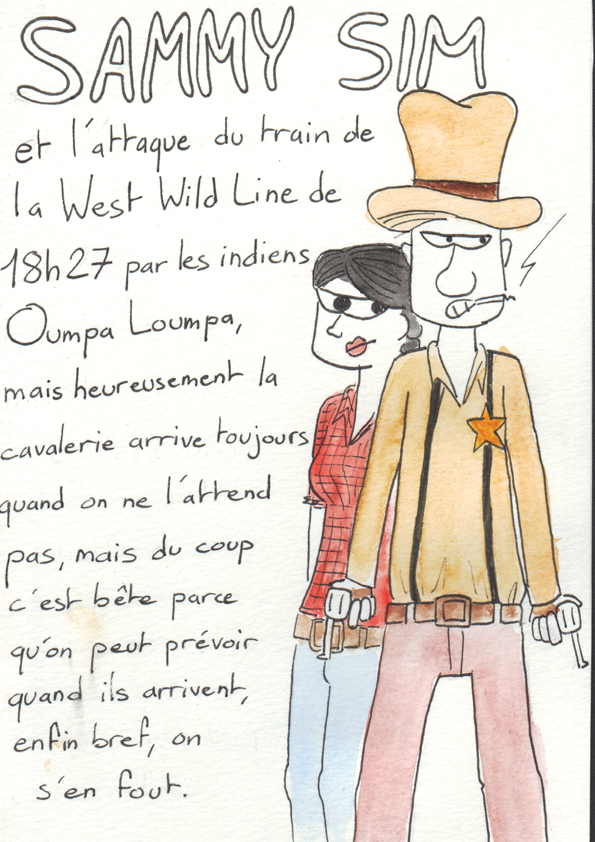 SAMMY SIM
et l'attaque du train de
la West Wild Line de
18h27 par les indiens
Oumpa Loumpa,
mais heureusement la
cavalerie arrive toujours
quand on ne l'attend
pas, mais du coup
c'est bête parce
qu'on peut prévoir
quand ils arrivent,
enfin bref, on
s'en fout.